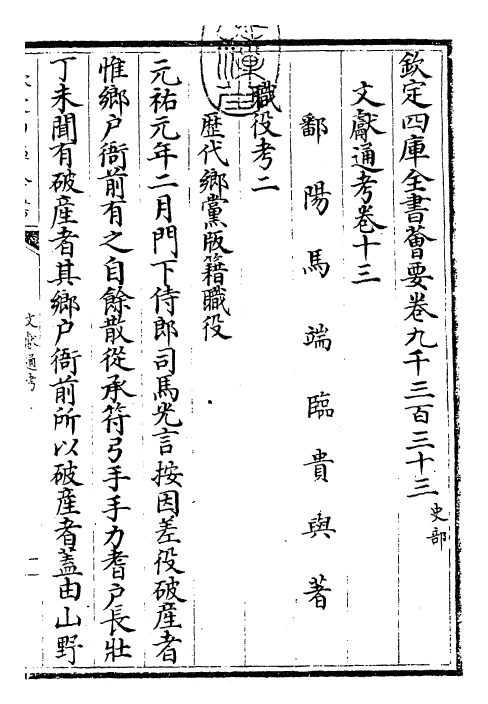 欽定四庫全書薈要卷九千三百三十三 史部
文獻通考卷十三
鄱陽馬端臨貴與著
職役考二
歷代鄉黨版籍職役
元祐元年二月門下侍郎司馬光言按因差役破產者
惟鄉戶衙前有之自餘散從承符弓手手力耆戶長壯
丁未聞有破產者其鄉戶衙前所以破產者蓋由山野
文獻通考
一